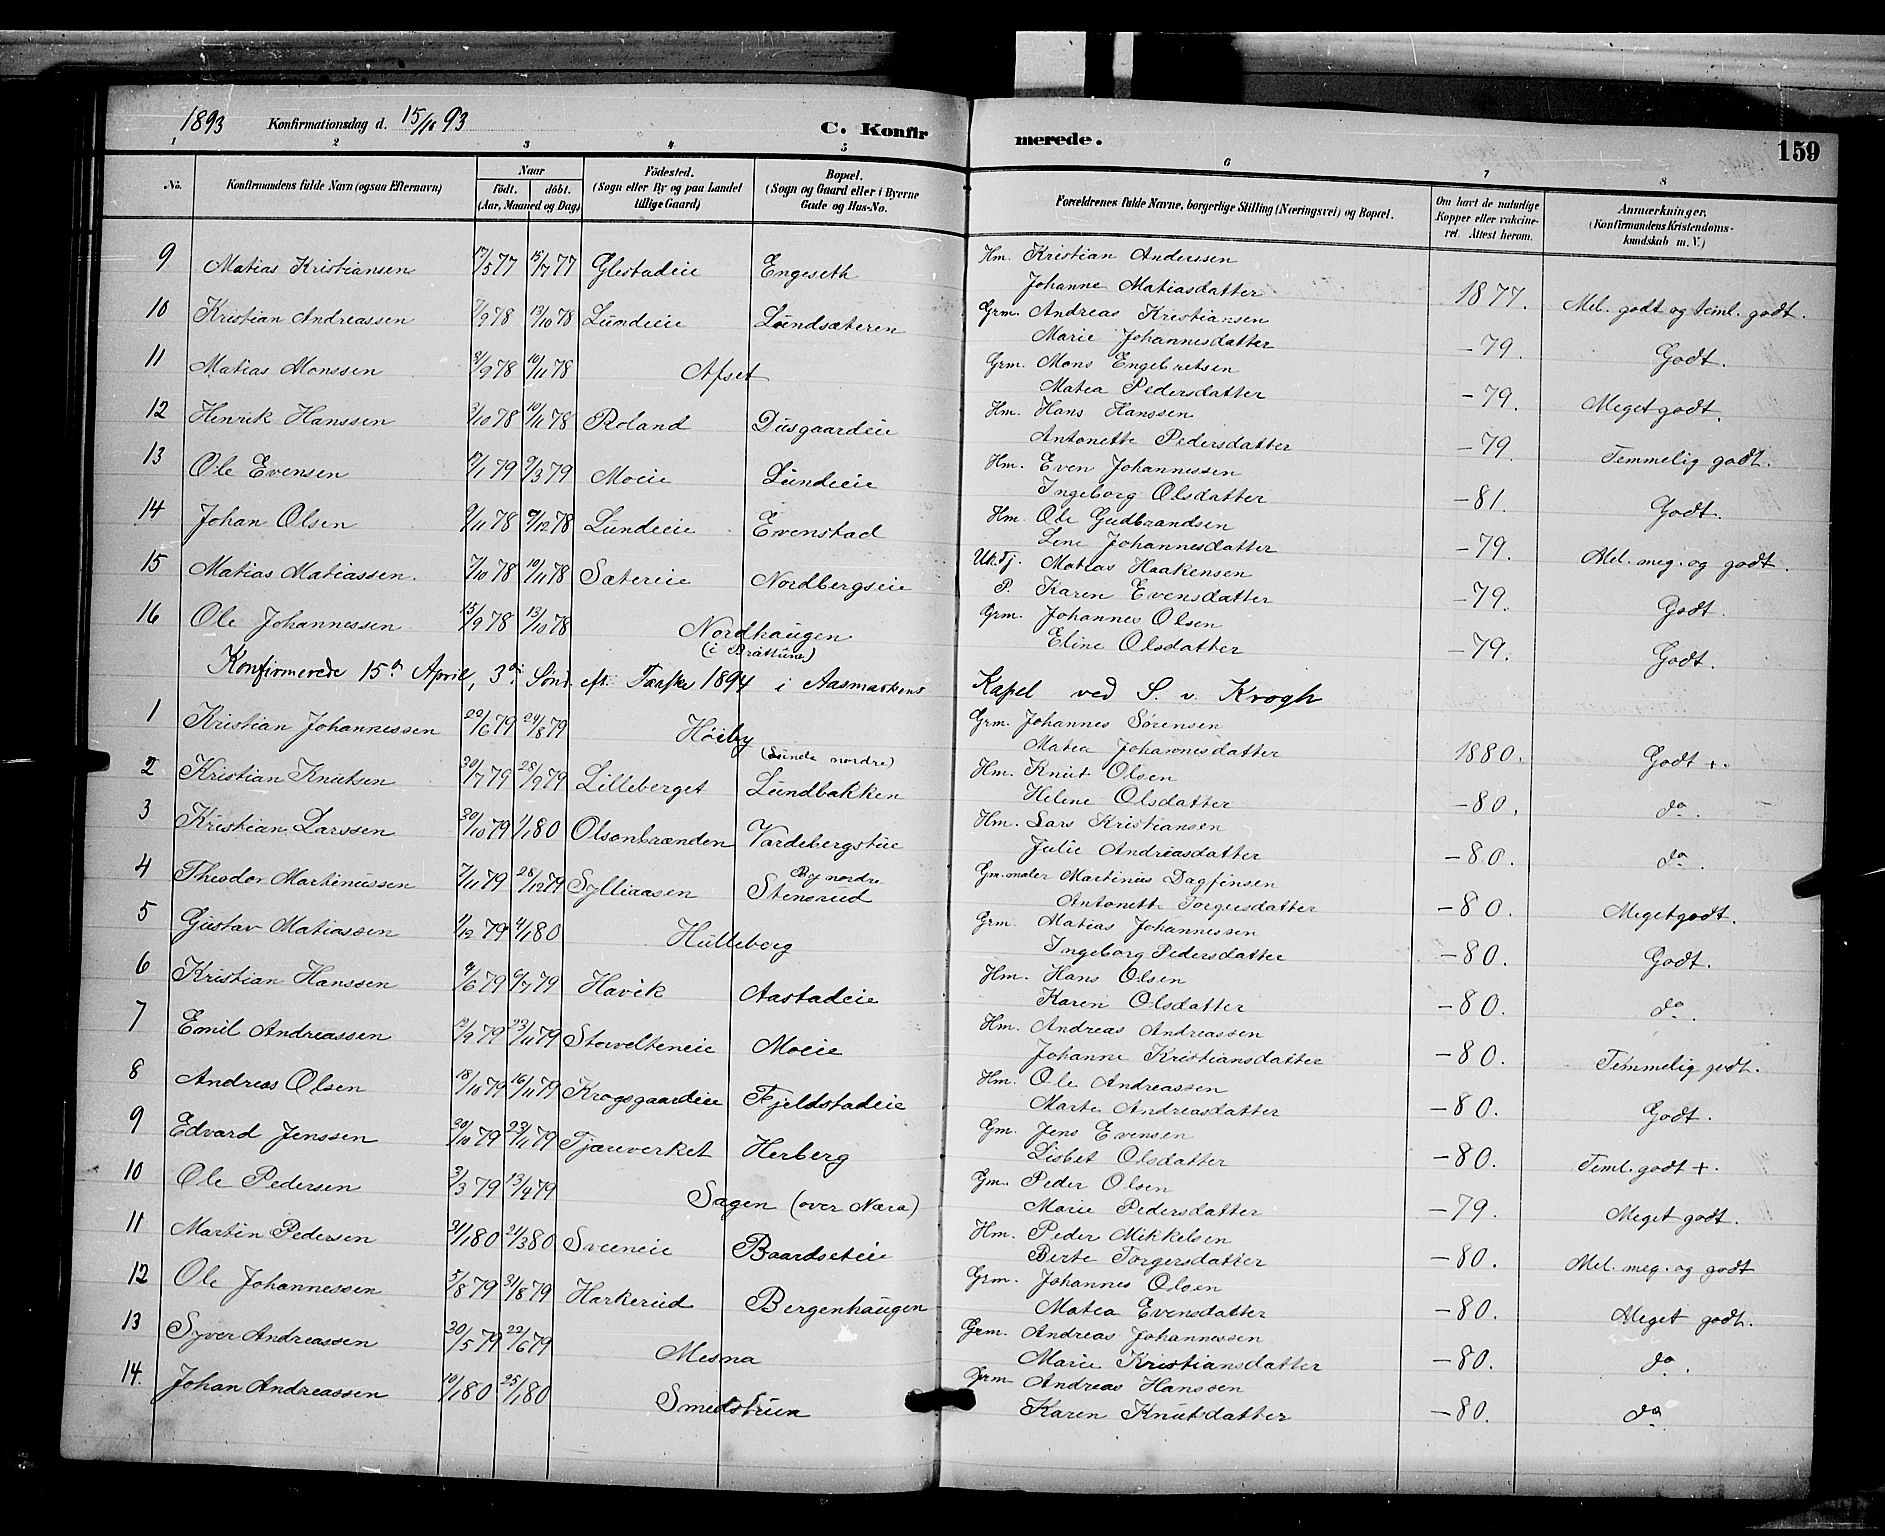 1893 Konfirmationsdag d. 15/10 93 C. Konfirmerede. 159
1 2 3 4 5 6 7 8
No. Konfirmandens fulde Navn (ogsaa Efternavn) Naar født. døbt. (Aar, Maaned og Dag) Fødested. (Sogn eller By og paa Landet tillige Gaard) Bopæl. (Sogn og Gaard eller i Byerne Gade og Hus-No. Forældrenes fulde Navne, borgerlige Stilling (Næringsvei) og Bopæl. Om havt de naturlige Kopper eller vakcineret. Attest herom. Anmærkninger. (Konfirmandens Kristendomskundskab m. V.)
9 Matias Kristiansen 17/5 77 15/7 77 Glestadeie Engeseth Hm. Kristian Anderssen
Johanne Matiasdatter 1877. Mel. godt og teml. godt.
10 Kristian Andreassen 7/9 78 13/10 78 Lundeie Lundsæteren Grm. Andreas Kristiansen
Marie Johannesdatter -79. Godt.
11 Matias Monssen 8/9 78 10/11 78 Afset Grm. Mons Engebretsen
Matea Pedersdatter -79. Meget godt.
12 Henrik Hanssen 2/10 78 10/11 78 Roland Dusgaardeie Hm. Hans Hanssen
Antonette Pedersdatter -79. Temmelig godt.
13 Ole Evensen 17/1 79 9/3 79 Moeie Lundeie Hm. Even Johannessen
Ingeborg Olsdatter -81. Godt.
14 Johan Olsen 9/11 78 9/12 78 Lundeie Evenstad Hm. Ole Gudbrandsen
Lene Johannesdatter -79. Mel. meg. og godt.
15 Matias Matiassen. 7/10 78 10/11 78 Sætereie Nordbergseie Uk. Tj. Matias Haakensen
P. Karen Evensdatter -79. Godt.
16 Ole Johannessen 15/9 78 13/10 78 Nordhaugen (i Brøttum) Grm. Johannes Olsen
Eline Olsdatter -79. Godt.
Konfirmerede 15de April, 3die Sønd. eft. Paaske 1894 i Aasmarkens Kapel ved S. v. Krogh
1 Kristian Johannessen 22/6 79 24/8 79 Høiby Grm. Johannes Sørensen
Matea Johannesdatter 1880. Godt +.
2 Kristian Knutsen 30/7 79 28/9 79 Lilleberget (Lunde nordre) Lundbakken Hm. Knut Olsen
Helene Olsdatter -80. do.
3 Kristian Larssen 30/10 79 1/1 80 Olsenbrænden Vardebergstue Hm. Lars Kristiansen
Julie Andreasdatter -80. do.
4 Theodor Martinussen 7/11 79 28/12 79 Sylliaasen By nordre Stensrud Gm. maler Martinus Dagfinsen
Antonette Torgersdatter -80. Meget godt.
5 Gustav Matiassen 1/12 79 4/1 80 Hulleborg Grm. Matias Johannessen
Ingeborg Pedersdatter -80. Godt.
6 Kristian Hanssen 4/6 79 6/7 79 Havik Aastadeie Hm. Hans Olsen
Karen Olsdatter -80. do.
7 Emil Andreassen 12/9 79 23/11 79 Storvelteneie Moeie Hm. Andreas Andreassen
Johanne Kristiansdatter -80. Temmelig godt.
8 Andreas Olsen 18/10 79 16/11 79 Krogsgaardeie Fjeldstadeie Hm. Ole Andreassen
Marte Andreasdatter -80. Godt.
9 Edvard Jenssen 20/10 79 23/11 79 Tjæreverket Herberg Gm. Jens Evensen
Lisbet Olsdatter -80. Teml. godt +.
10 Ole Pedersen 3/3 79 13/4 79 Sagen (over Næra) Gm. Peder Olsen
Marie Pedersdatter -79. Meget godt.
11 Martin Pedersen 31/1 80 21/3 80 Sveeneie Baardseteie Hm. Peder Mikkelsen
Berte Torgersdatter -80. Mel. meg. og godt
12 Ole Johannessen 5/8 79 31/8 79 Harkerud Bergenhaugen Grm. Johannes Olsen
Matea Evensdatter -80. Meget godt.
13 Syver Andreassen 20/5 79 22/6 79 Mesna Grm. Andreas Johannessen
Marie Kristiansdatter -80. do.
14. Johan Andreassen 10/1 80. 25/1 80 Smedstuen Grm Andreas Hanssen
Karen Knutsdatter -80. do.